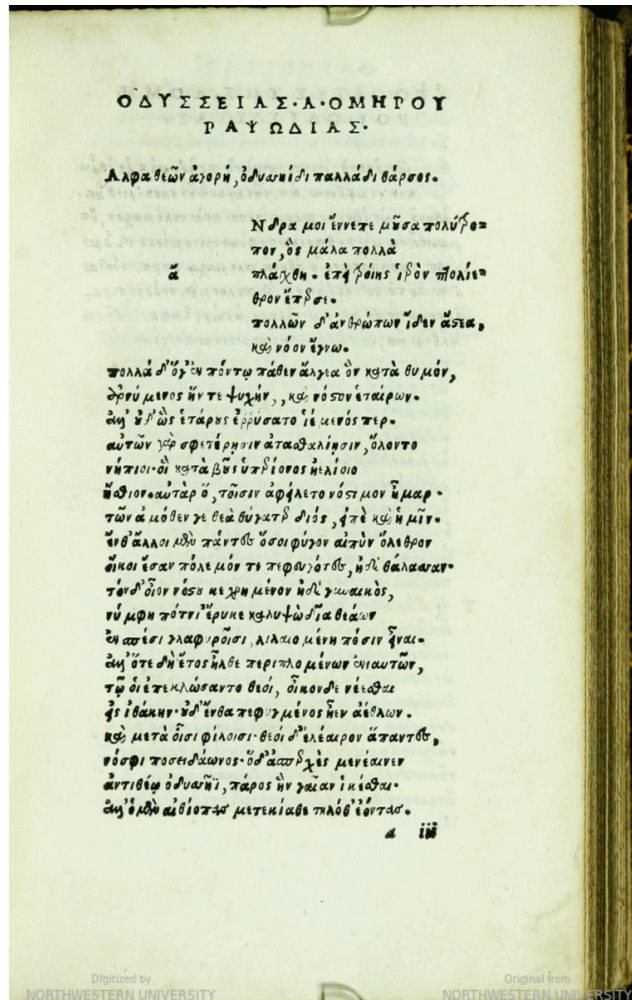 ΟΔΥΣΣΕΙΑΣ·Α·ΟΜΗΡΟΥ
ΡΑΨΩΔΙΑΣ·
Αλφα θεῶν ἀγορή, ὀδυσηΐδι παλλάδι θάρσος.
Νδρα μοι ἔννεπε μοῦσα πολύτρο=
πον, ὃς μάλα πολλὰ
ἄ
πλάγχθη. ἐπεὶ τροίης ἱερὸν πτολίε=
θρον ἔπερσε.
πολλῶν δ' ἀνθρώπων ἴδεν ἄστεα,
καὶ νόον ἔγνω.
πολλὰ δ' ὅγ' ἐν πόντῳ πάθεν ἄλγεα ὃν κατὰ θυμόν,
ἀρνύμενος ἥν τε ψυχήν,, καὶ νόστον ἑταίρων.
ἀλλ' οὐδ' ὣς ἑτάρους ἐρρύσατο ἱέμενός περ.
αὐτῶν γὰρ σφετέρησιν ἀτασθαλίησιν, ὄλοντο
νήπιοι· οἳ κατὰ βοῦς ὑπερίονος ἠελίοιο
ἤσθιον. αὐτὰρ ὅ, τοῖσιν ἀφείλετο νόστιμον ἦμαρ.
τῶν ἁμόθεν γε θεὰ θύγατερ διός, εἰπὲ καὶ ἡμῖν.
ἔνθ' ἄλλοι μὲν πάντες ὅσοι φύγον αἰπὺν ὄλεθρον
οἴκοι ἔσαν πόλεμόν τε πεφευγότες, ἠδὲ θάλασσαν.
τόνδ' οἶον νόστου κεχρημένον ἠδὲ γυναικὸς,
νύμφη πότνι' ἔρυκε καλυψὼ δῖα θεάων
ἐν σπέσι γλαφυροῖσι, λιλαιομένη πόσιν εἶναι.
ἀλλ' ὅτε δὴ ἔτος ἦλθε περιπλομένων ἐνιαυτῶν,
τῷ οἱ ἐπεκλώσαντο θεοί, οἶκονδε νέεσθαι
εἰς ἰθάκην· οὐδ' ἔνθα πεφυγμένος ἦεν ἀέθλων.
καὶ μετὰ οἷσι φίλοισι· θεοὶ δ' ἐλέαιρον ἅπαντες,
νόσφι ποσειδάωνος· ὅδ' ἀσπερχὲς μενέαινεν
ἀντιθέῳ ὀδυσῆϊ, πάρος ἣν γαῖαν ἱκέσθαι.
ἀλλ' ὁ μὲν αἰθίοπας μετεκίαθε τηλόθ' ἐόντας.
a iii
Digitized by
NORTHWESTERN UNIVERSITY
Original from
NORTHWESTERN UNIVERSITY